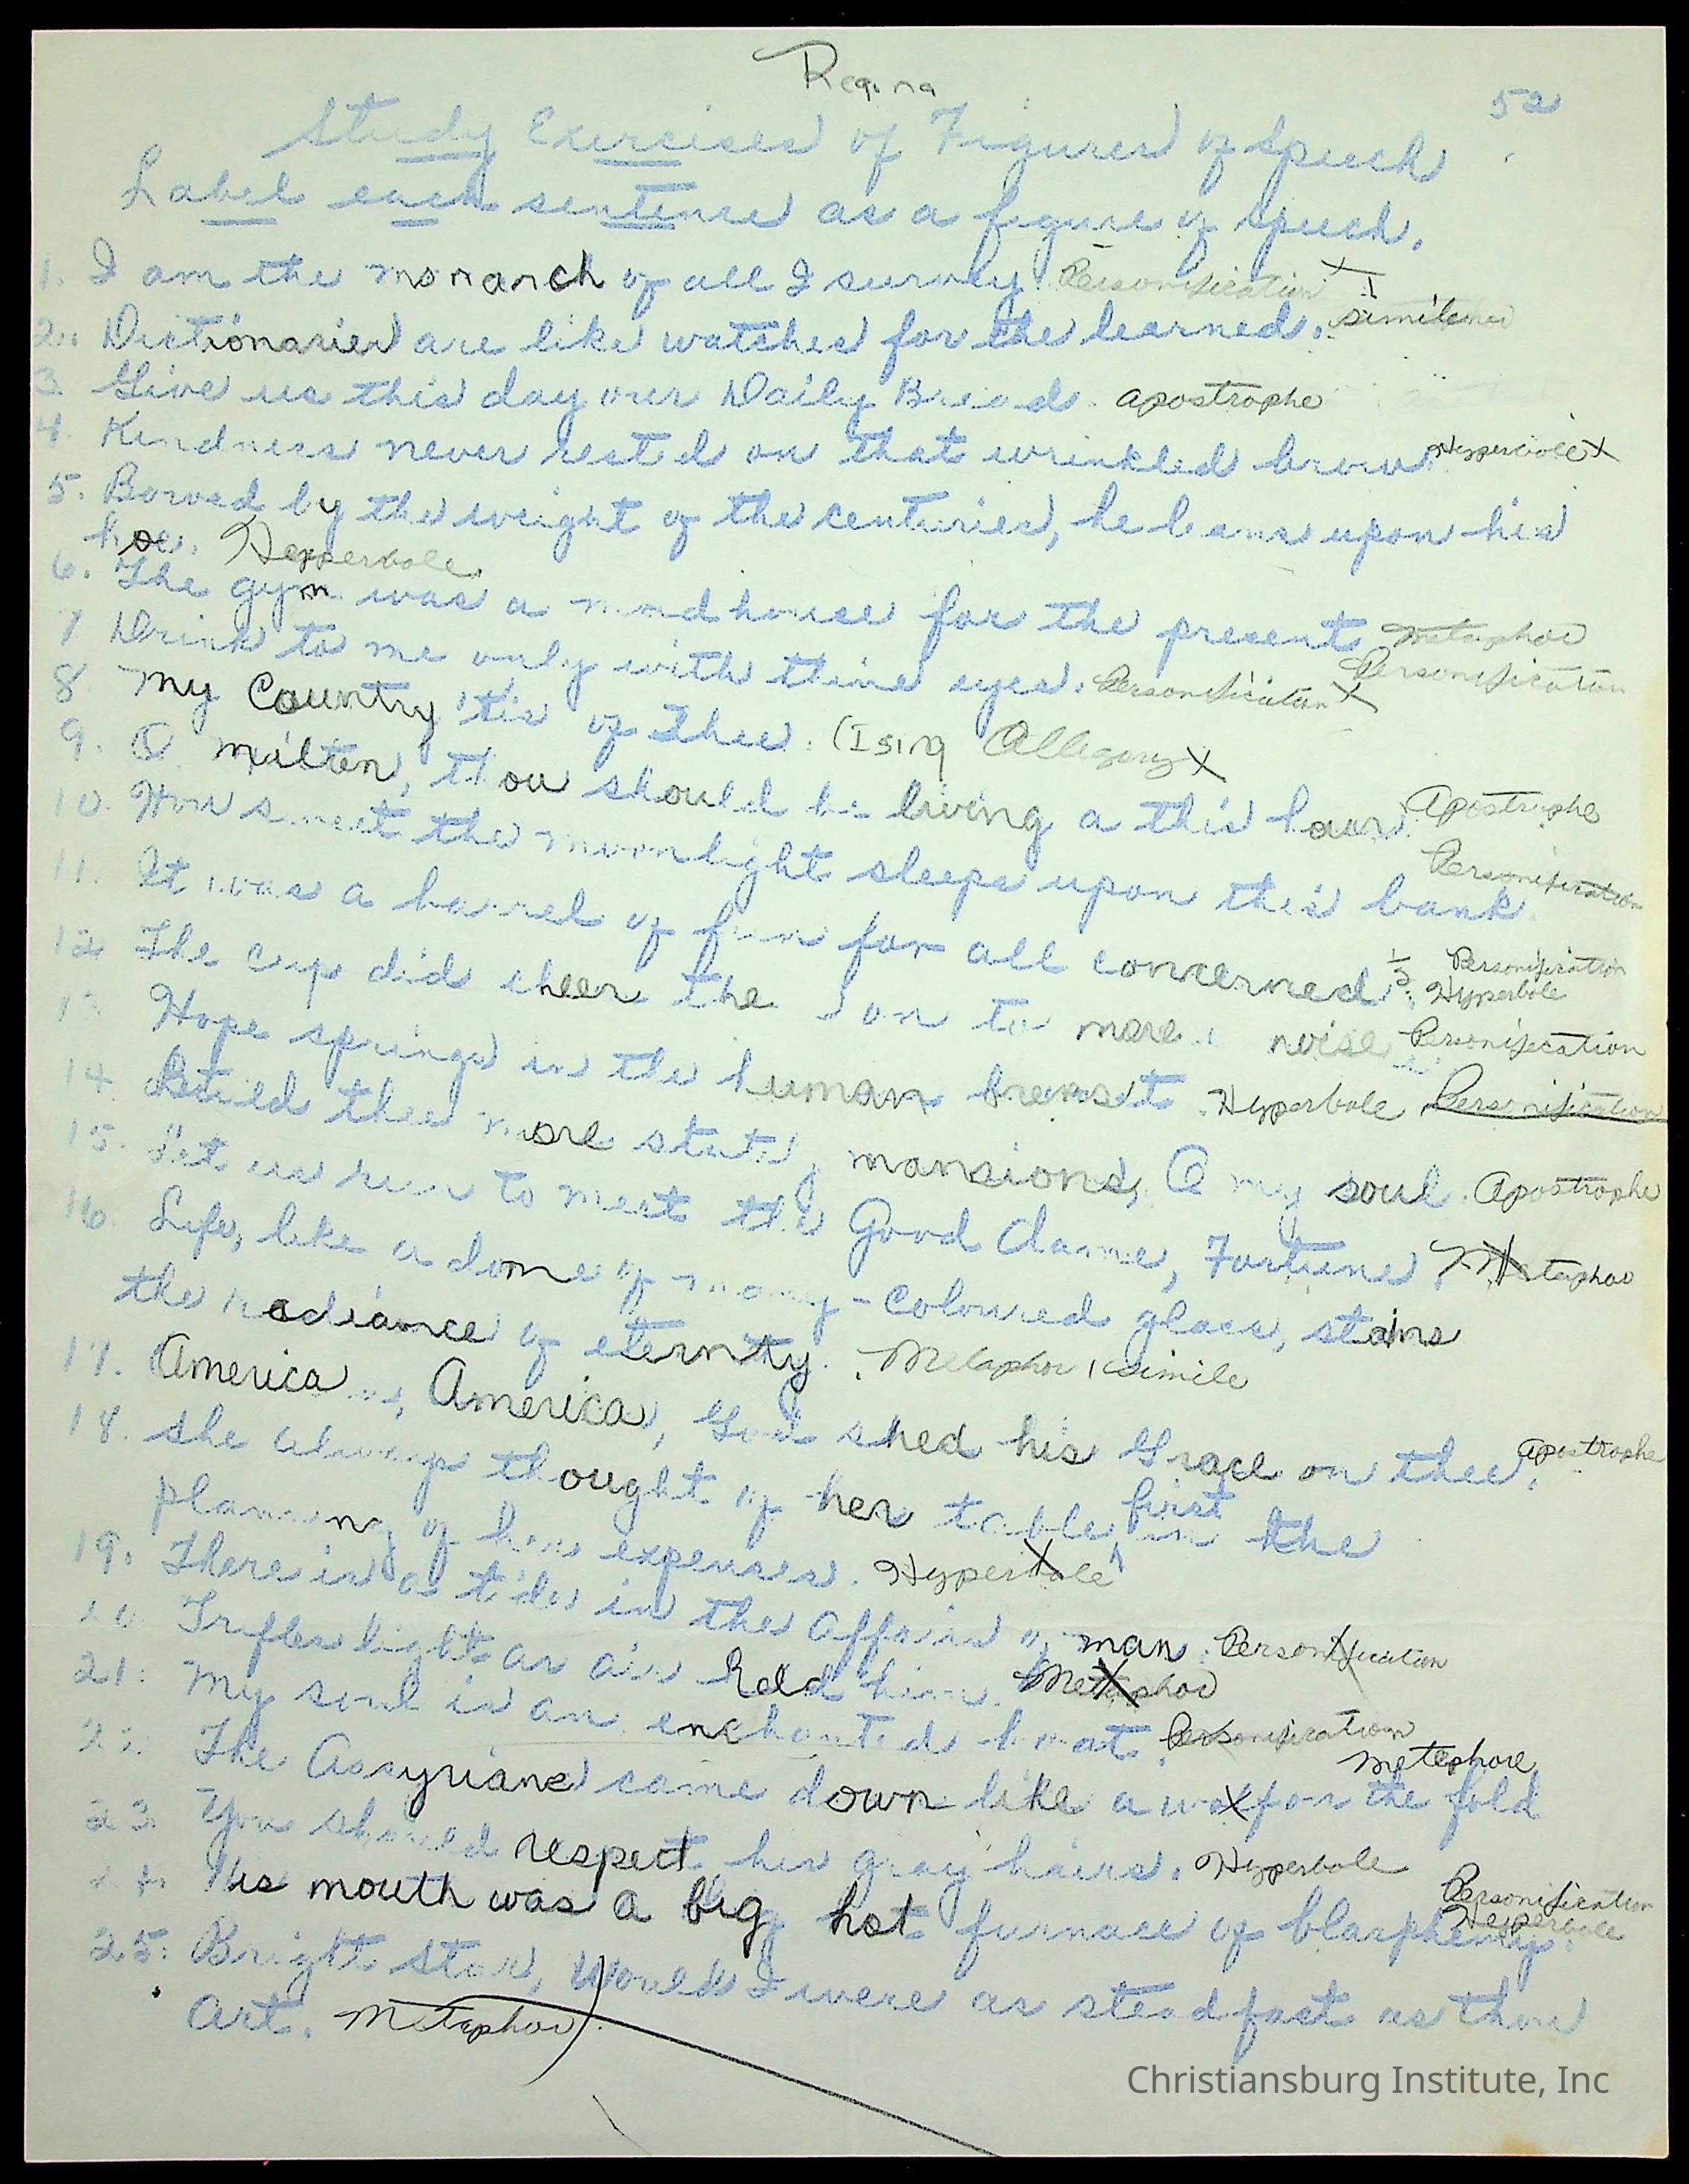 Regina
52
Study Exercises of Figures of Speech
Label each sentence as a figure of speech.
1. I am the monarch of all I survey. Personification
2. Dictionaries are like watches for the learned. simile
3. Give us this day our Daily Bread. apostrophe
4. Kindness never rested on that wrinkled brow. Hyperbole X
5. Bowed by the weight of the centuries, he leans upon his
hoe. Hyperbole
6. The gym was a madhouse for the present metaphor
Personification
7 Drink to me only with thine eyes. Personification X
8. My Country 'tis of Thee. (I sing Allegory X
9. O Milton, thou should be living a this hour. Apostrophe
10. How sweet the moonlight sleeps upon this bank Personification
11. It was a barrel of fun for all concerned. Personification
Hyperbole
12 The cup did cheer the on to more noise Personification
13 Hope springs in the human breast. Hyperbole Personification
14. Build thee more stately mansions, O my soul. Apostrophe
15. Let us run to meet the Good dame, Fortune. Metaphor
16. Life, like a dome of many-coloured glass, stains
the radiance of eternity. Metaphor, simile
17. America, America, God shed his Grace on thee. apostrophe
18. She always thought of her table first in the
planning of her expenses. Hyperbole
19. There is a tide in the affairs of man. Personification
20 Trifles light as air held him. Metaphor
21. My soul is an enchanted boat. Personification
metephore
22. The Assyrians came down like a wolf on the fold
23. You should respect her gray hairs. Hyperbole
24. His mouth was a big hot furnace of blasphemy. Personification
Hyperbole
25. Bright star, would I were as steadfast as thou
Art. Metaphor
Christiansburg Institute, Inc